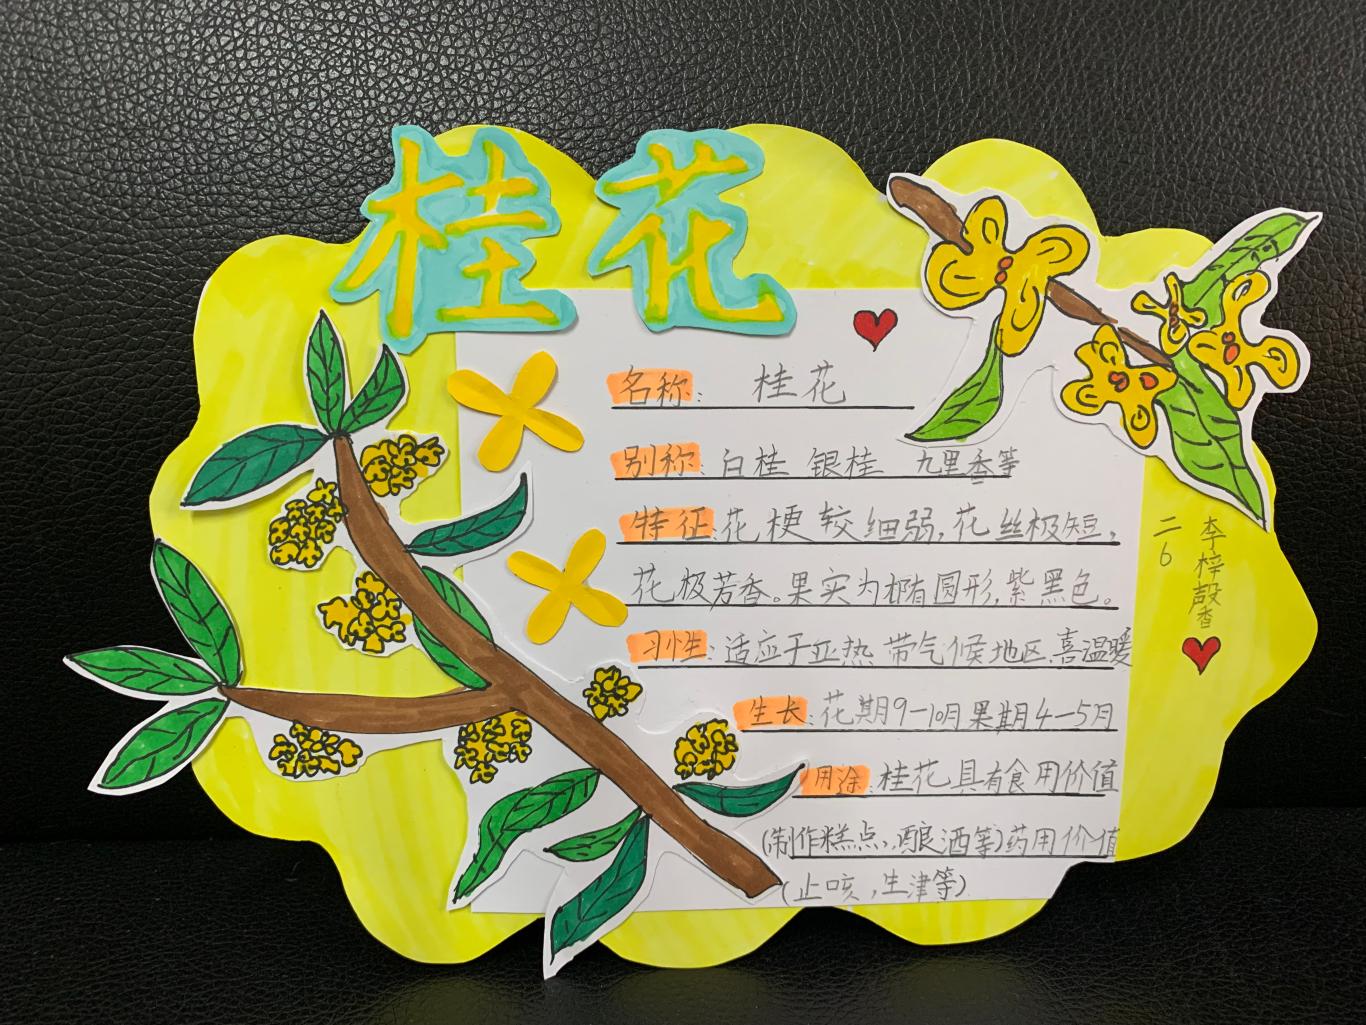 桂花
名称: 桂花
别称: 白桂 银桂 九里香等
特征: 花梗较细弱,花丝极短,
花极芳香。果实为椭圆形,紫黑色。
习性: 适应于亚热带气候地区.喜温暖
生长: 花期9-10月果期4-5月
用途: 桂花具有食用价值
(制作糕点,酿酒等)药用价值
(止咳,生津等)
二6
李梓